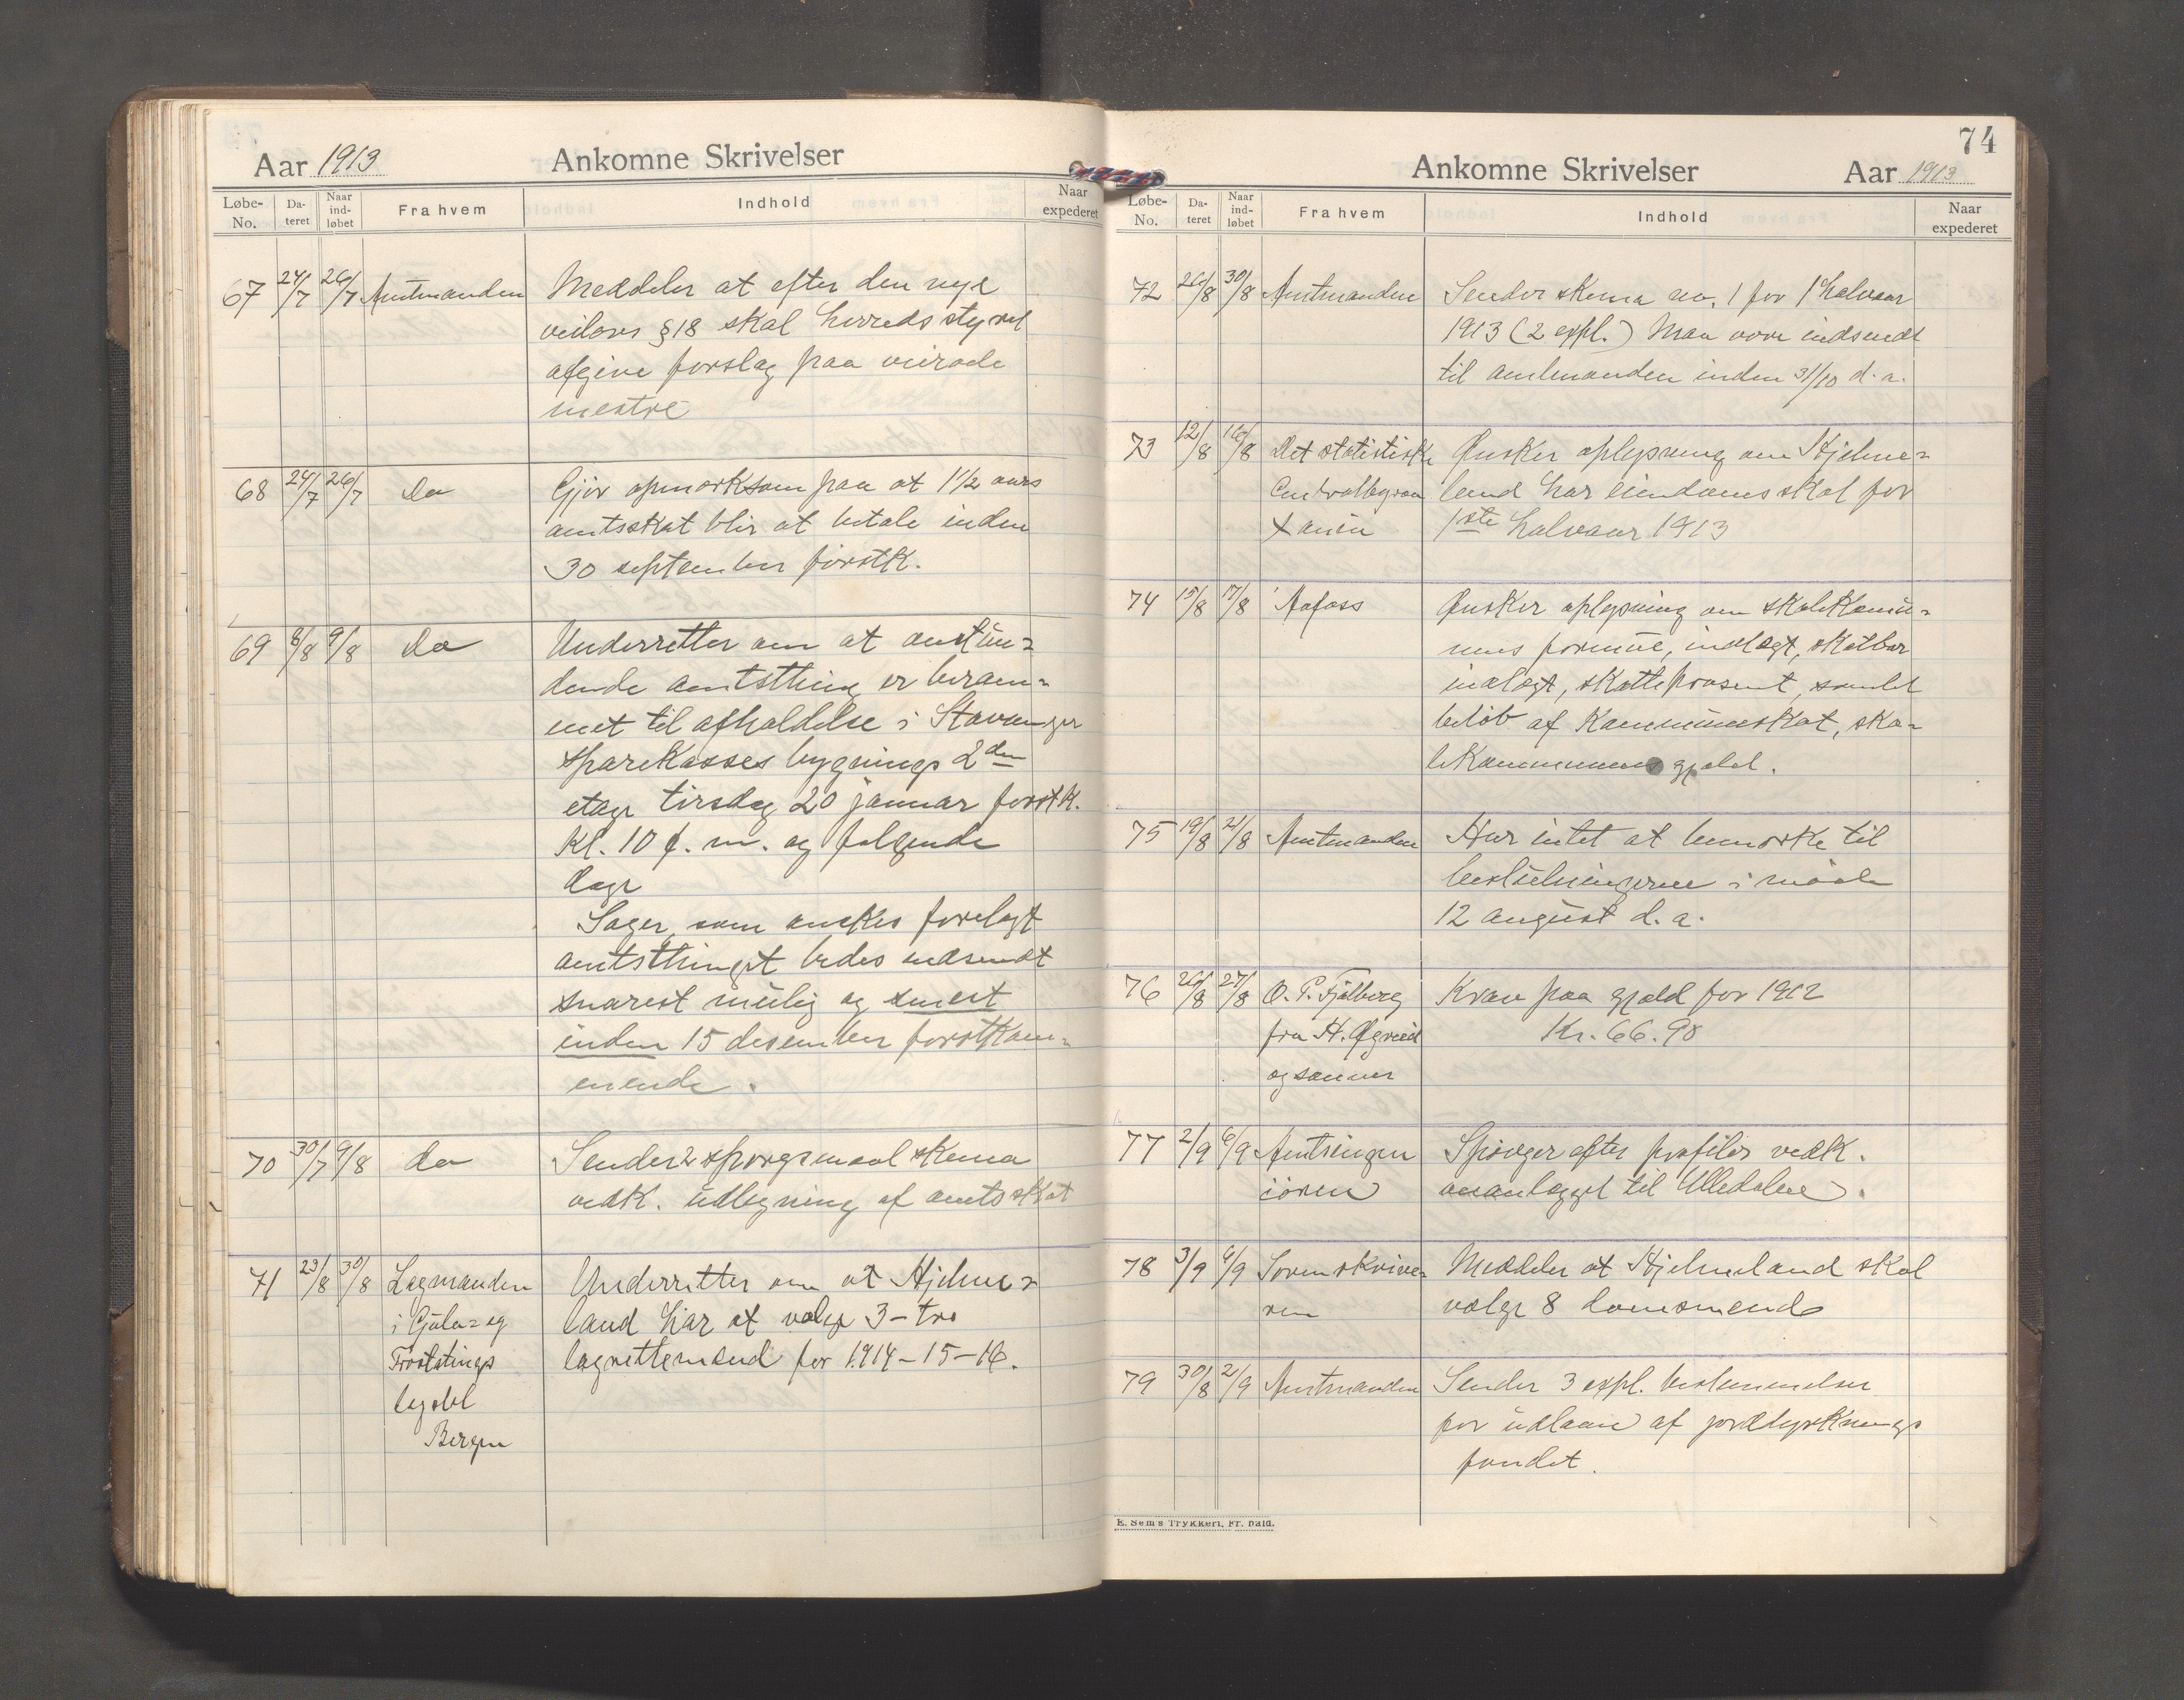 Aar 1913 Ankomne Skrivelser
Løbe-No. Dateret Naar indløbet Fra hvem Indhold Naar expederet
67 24/7 26/7 Amtmanden Meddeler at efter den nye
veilovs § 18 skal herredsstyret
afgive forslag paa veirode
mestre
68 24/7 26/7 do Gjør opmerksom paa at 1 1/2 aars
amtsskat blir at betale inden
30 september førstk.
69 8/8 9/8 do Underretter om at anstun=
dende amtsthing er beram=
met til afholdelse i Stavanger
sparekasses bygnings 2den
etage tirsdag 20 januar førstk.
Kl. 10 f. m. og følgende
dage
Sager, som ønskes forelagt
amtsthinget bedes indsendt
snarest mulig og senest
inden 15 desember førstkom=
mende.
70 30/7 9/8 do Sender 2 spørgsmaal skema
vedk. udligning af amtsskat
71 23/8 30/8 Lagmanden Underretter om at Hjelme=
i Gula= og land har at vælge 3 - tre
Frostatings lagrettemænd for 1914-15-16.
lagdøl
Bergen
74
Ankomne Skrivelser Aar 1913
Løbe-No. Dateret Naar indløbet Fra hvem Indhold Naar expederet
72 26/8 30/8 Amtmanden Sender skema no. 1 for 1 halvaar
1913 (2 expl.) Maa være indsendt
til amtmanden inden 31/10 d. a.
73 12/8 16/8 Det statistiske Ønsker oplysning om Hjelme=
Centralbyraa land har eiendomsskat for
Xania 1ste halvaar 1913
74 15/8 17/8 Aafoss Ønsker oplysning om skolekomu=
nens formue, indtægt, skatbar
indtægt, skatteprosent, samlet
beløb af kommuneskat, sko=
lekommunens gjæld.
75 19/8 21/8 Amtmanden Har intet at bemerke til
beslutningerne i møde
12 august d. a.
76 26/8 27/8 O. P. Fjølberg Krav paa gjæld for 1912
fra H. Øgreid Kr. 66.98
og sønner
77 2/9 6/9 Amtsingen Spørger efter profiler vedk.
iøren anlægget til Ulledalen.
78 3/9 6/9 Sorenskrive= Meddeler at Hjelmeland skal
ren vælge 8 domsmænd
79 30/8 2/9 Amtmanden Sender 3 expl. bestemmelser
for udlaan af jorddyrknings
fondet.
E. Sem's Trykkeri, Fr.hald.